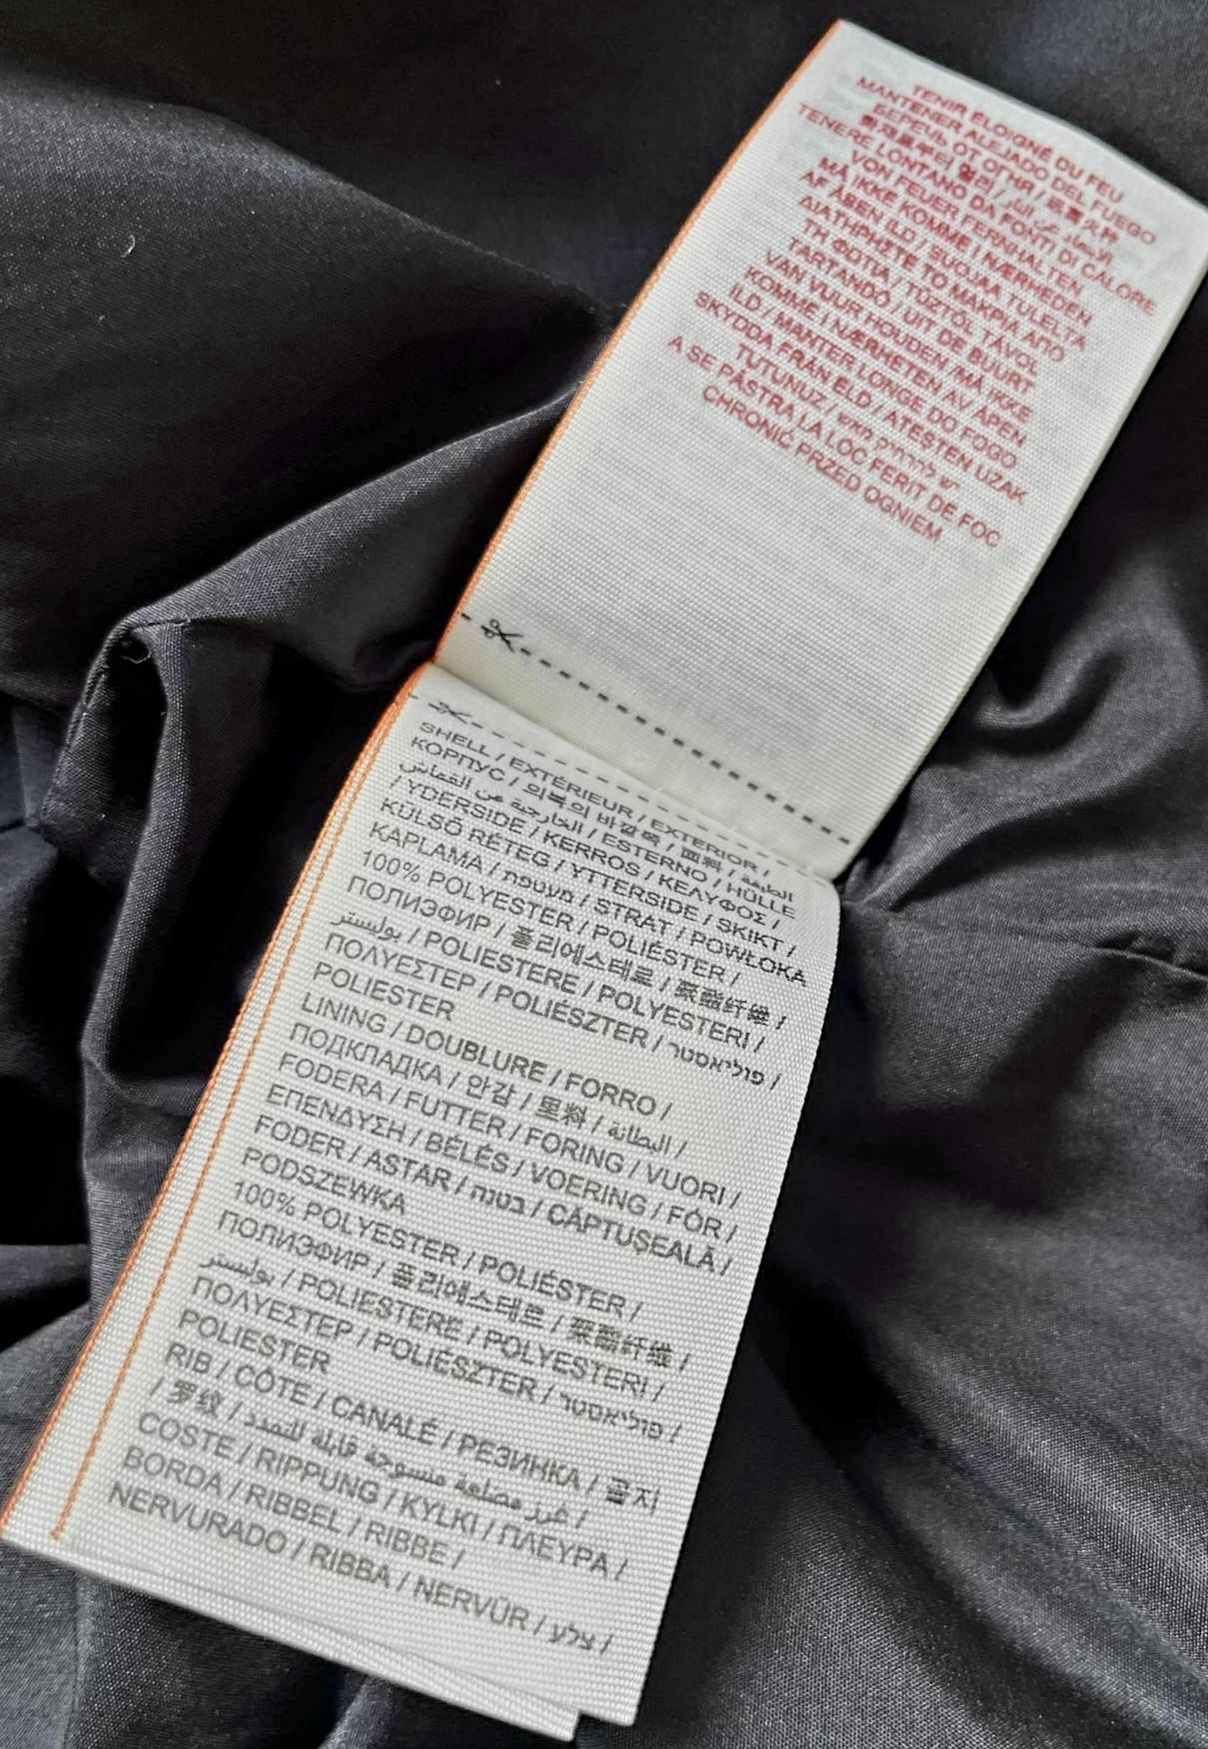 TENIR ÉLOIGNÉ DU FEU
MANTENER ALEJADO DEL FUEGO
БЕРЕЧЬ ОТ ОГНЯ /
TENERE LONTANO DA FONTI DI CALORE
VON FEUER FERNHALTEN
MÅ IKKE KOMME I NÆRHEDEN
AF ÅBEN ILD / SUOJAA TULELTA
ΔΙΑΤΗΡΗΣΤΕ ΤΟ ΜΑΚΡΙΑ ΑΠΟ
ΤΗ ΦΩΤΙΑ / TŰZTŐL TÁVOL
TARTANDÓ / UIT DE BUURT
VAN VUUR HOUDEN /MÅ IKKE
KOMME I NÆRHETEN AV ÅPEN
ILD / MANTER LONGE DO FOGO
SKYDDA FRÅN ELD / ATEŞTEN UZAK
TUTUNUZ / יש להרחיק מאש
A SE PĂSTRA LA LOC FERIT DE FOC
CHRONIĆ PRZED OGNIEM
SHELL / EXTÉRIEUR / EXTERIOR /
КОРПУС / 의복의 바깥쪽 / 面料 / الطبقة
الخارجية عن القماش / ESTERNO / HÜLLE
/ YDERSIDE / KERROS / ΚΕΛΥΦΟΣ /
KÜLSŐ RÉTEG / YTTERSIDE / SKIKT /
KAPLAMA / מעטפת / STRAT / POWŁOKA
100% POLYESTER / POLIÉSTER /
ПОЛИЭФИР / 폴리에스테르 / 聚酯纤维 /
بوليستر / POLIESTERE / POLYESTERI /
ΠΟΛΥΕΣΤΕΡ / POLIÉSZTER / פוליאסטר /
POLIESTER
LINING / DOUBLURE / FORRO /
ПОДКЛАДКА / 안감 / 里料 / البطانة /
FODERA / FUTTER / FORING / VUORI /
ΕΠΕΝΔΥΣΗ / BÉLÉS / VOERING / FÔR /
FODER / ASTAR / בטנה / CĂPTUȘEALĂ /
PODSZEWKA
100% POLYESTER / POLIÉSTER /
ПОЛИЭФИР / 폴리에스테르 / 聚酯纤维 /
بوليستر / POLIESTERE / POLYESTERI /
ΠΟΛΥΕΣΤΕΡ / POLIÉSZTER / פוליאסטר /
POLIESTER
RIB / CÔTE / CANALÉ / РЕЗИНКА / 골지
/ 罗纹 / غرز مضلعة منسوجة قابلة للتمدد /
COSTE / RIPPUNG / KYLKI / ΠΛΕΥΡΑ /
BORDA / RIBBEL / RIBBE /
NERVURADO / RIBBA / NERVÜR / צלע /